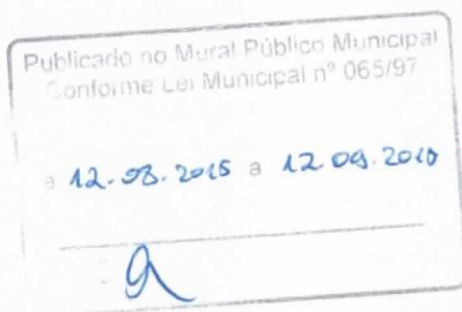 Publicado no Mural Público Municipal
Conforme Lei Municipal nº 065/97
12.08.2015 a 12.09.2015